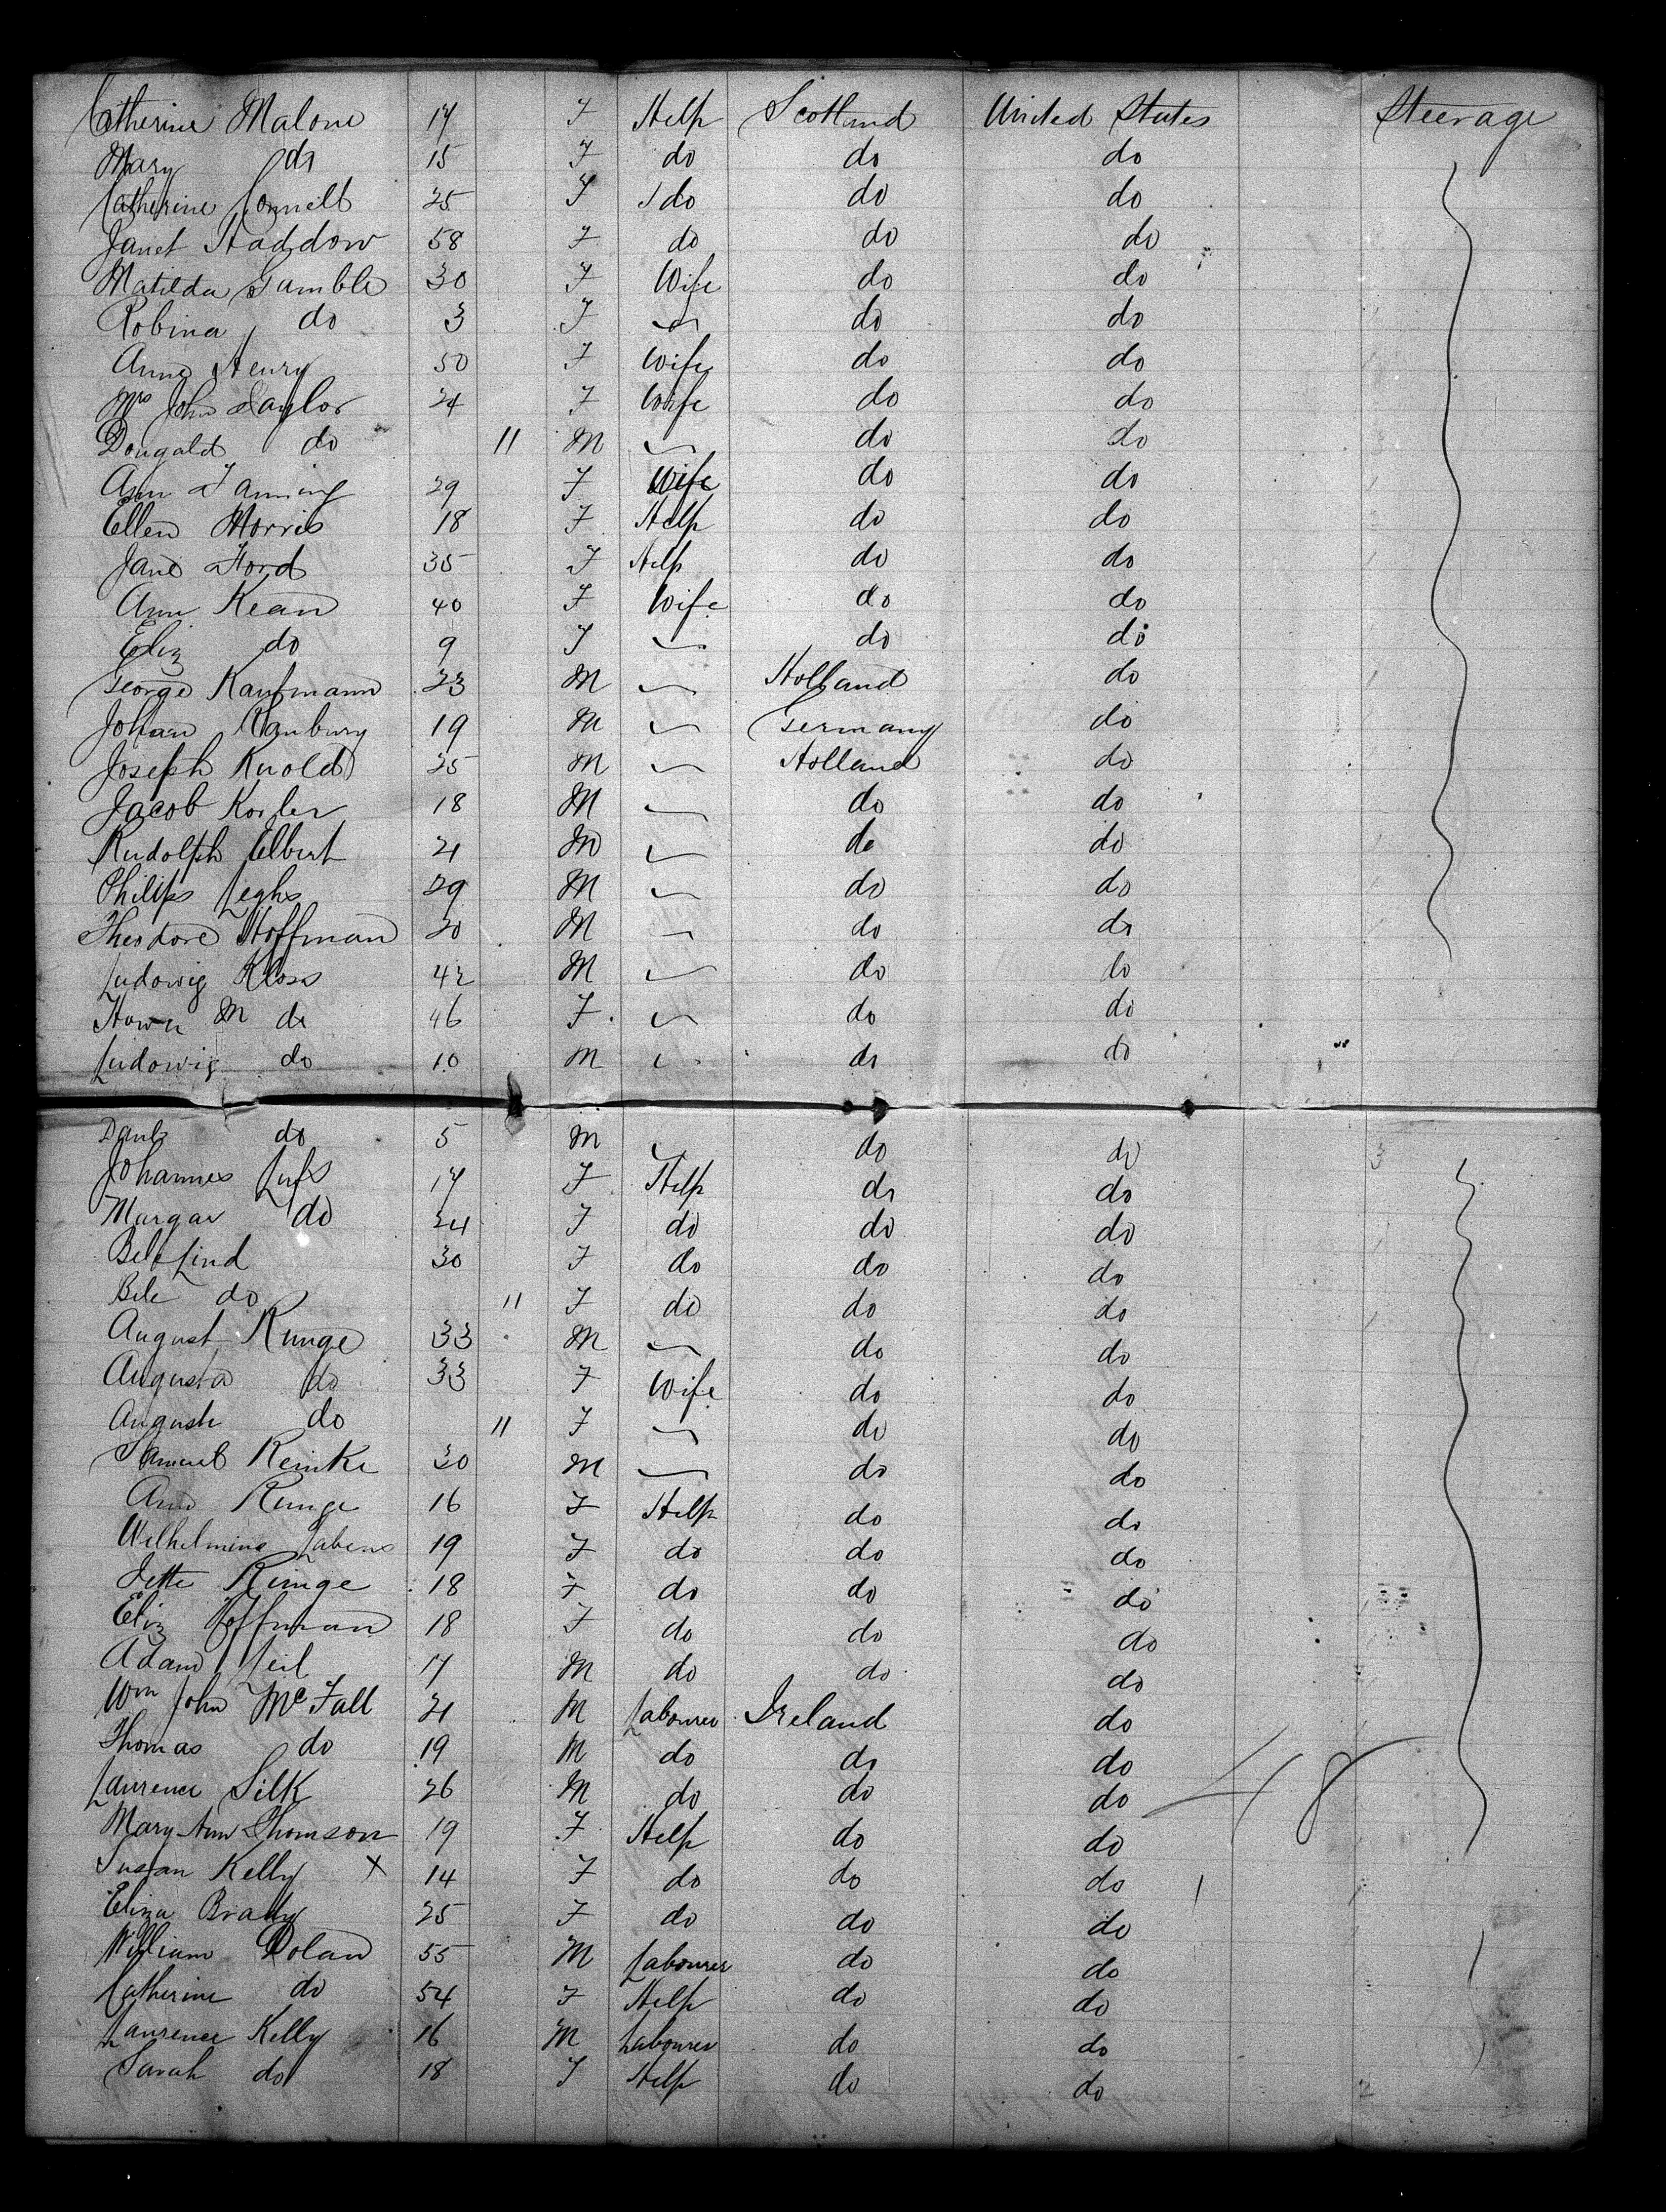 Catherine Malone 17 F Help Scotland United States Steerage
Mary do 15 F do do do
Catherine Connell 25 F do do do
Janet Haddow 58 F do do do
Matilda Gamble 30 F Wife do do
Robina do 3 F do do
Anne Henry 50 F Wife do do
Mrs John Taylor 24 F Wife do do
Dougald do 11 M do do
Ann Fanning 29 F Wife do do
Ellen Morris 18 F Help do do
Jane Ford 35 F Help do do
Ann Kean 40 F Wife do do
Eliz do 9 F do do
George Kaufmann 23 M Holland do
Johan Ranbury 19 M Germany do
Joseph Kuold 25 M Holland do
Jacob Kosler 18 M do do
Rudolph Elbert 21 M do do
Philips Leghs 29 M do do
Theodore Hoffman 20 M do do
Ludowig Kloss 42 M do do
M do 46 F do do
Ludowig do 10 M do do
do 5 M do do
Johannes 17 F Help do do
Margar do 24 F do do do
Lind 30 F do do do
do 11 F do do do
August Runge 33 M do do
Augusta do 33 F Wife do do
August do 11 F do do
Samuel Reinke 30 M do do
Ann Runge 16 F Help do do
Wilhelmine Labens 19 F do do do
Jette Runge 18 F do do do
Eliz Hoffman 18 F do do do
Adam 17 M do do do
Wm John McFall 21 M Labourer Ireland do
Thomas do 19 M do do do
Laurence Silk 26 M do do do 48
Mary Ann Thomson 19 F Help do do
Susan Kelly X 14 F do do do
Eliza Brady 25 F do do do
William Dolan 55 M Labourer do do
Catherine do 54 F Help do do
Laurence Kelly 16 M Labourer do do
Sarah do 18 F Help do do